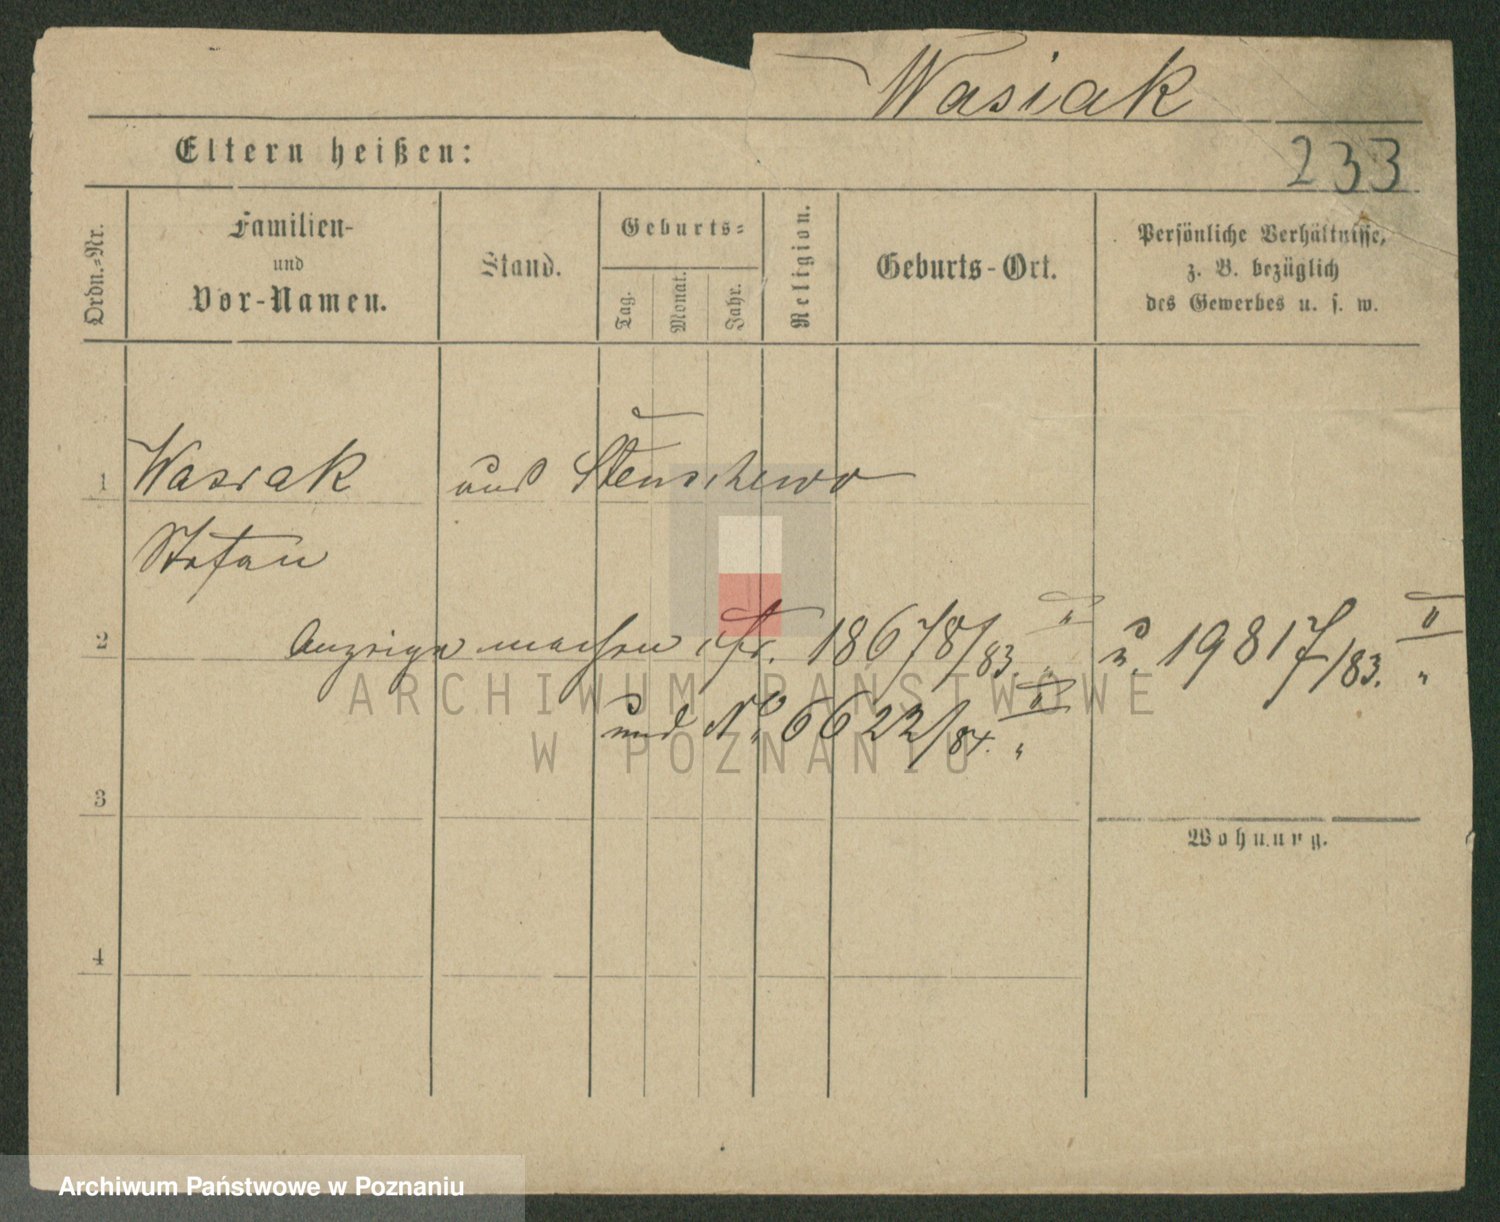 Wasiak
Eltern heißen:
233
Ordn.-Nr.
Familien-
und
Vor-Namen.
Stand.
Geburts-
Tag.
Monat.
Jahr.
Religion.
Geburts-Ort.
Persönliche Verhältnisse,
z. B. bezüglich
des Gewerbes u. s. w.
1 Wasiak aus Stenschewo
Stefan
2 Anzeige machen cfr. 18678/83. II u. 19817/83. II
und No 6622/84. II
ARCHIWUM PAŃSTWOWE
W POZNANIU
3
Wohnung.
4
Archiwum Państwowe w Poznaniu